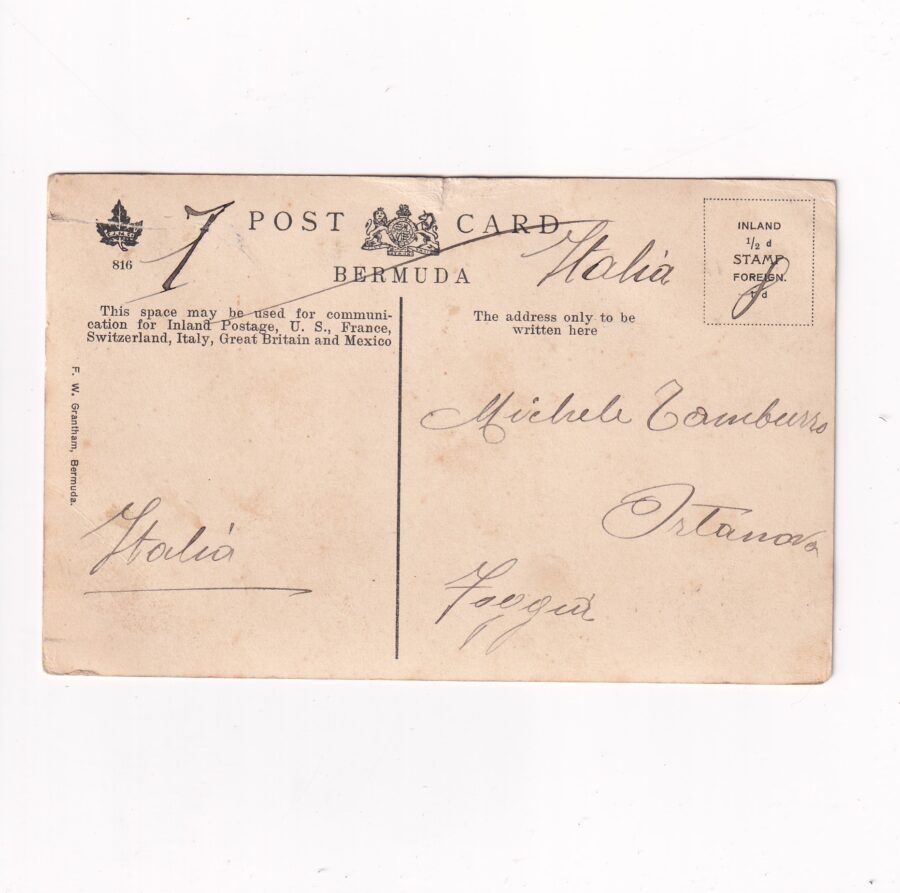 POST CARD
BERMUDA
816
7
Italia
INLAND
1/2 d
STAMP
FOREIGN.
1 d
8
This space may be used for communi-
cation for Inland Postage, U. S., France,
Switzerland, Italy, Great Britain and Mexico
The address only to be
written here
F. W. Grantham, Bermuda.
Michele Tamburro
Ortanova
Foggia
Italia